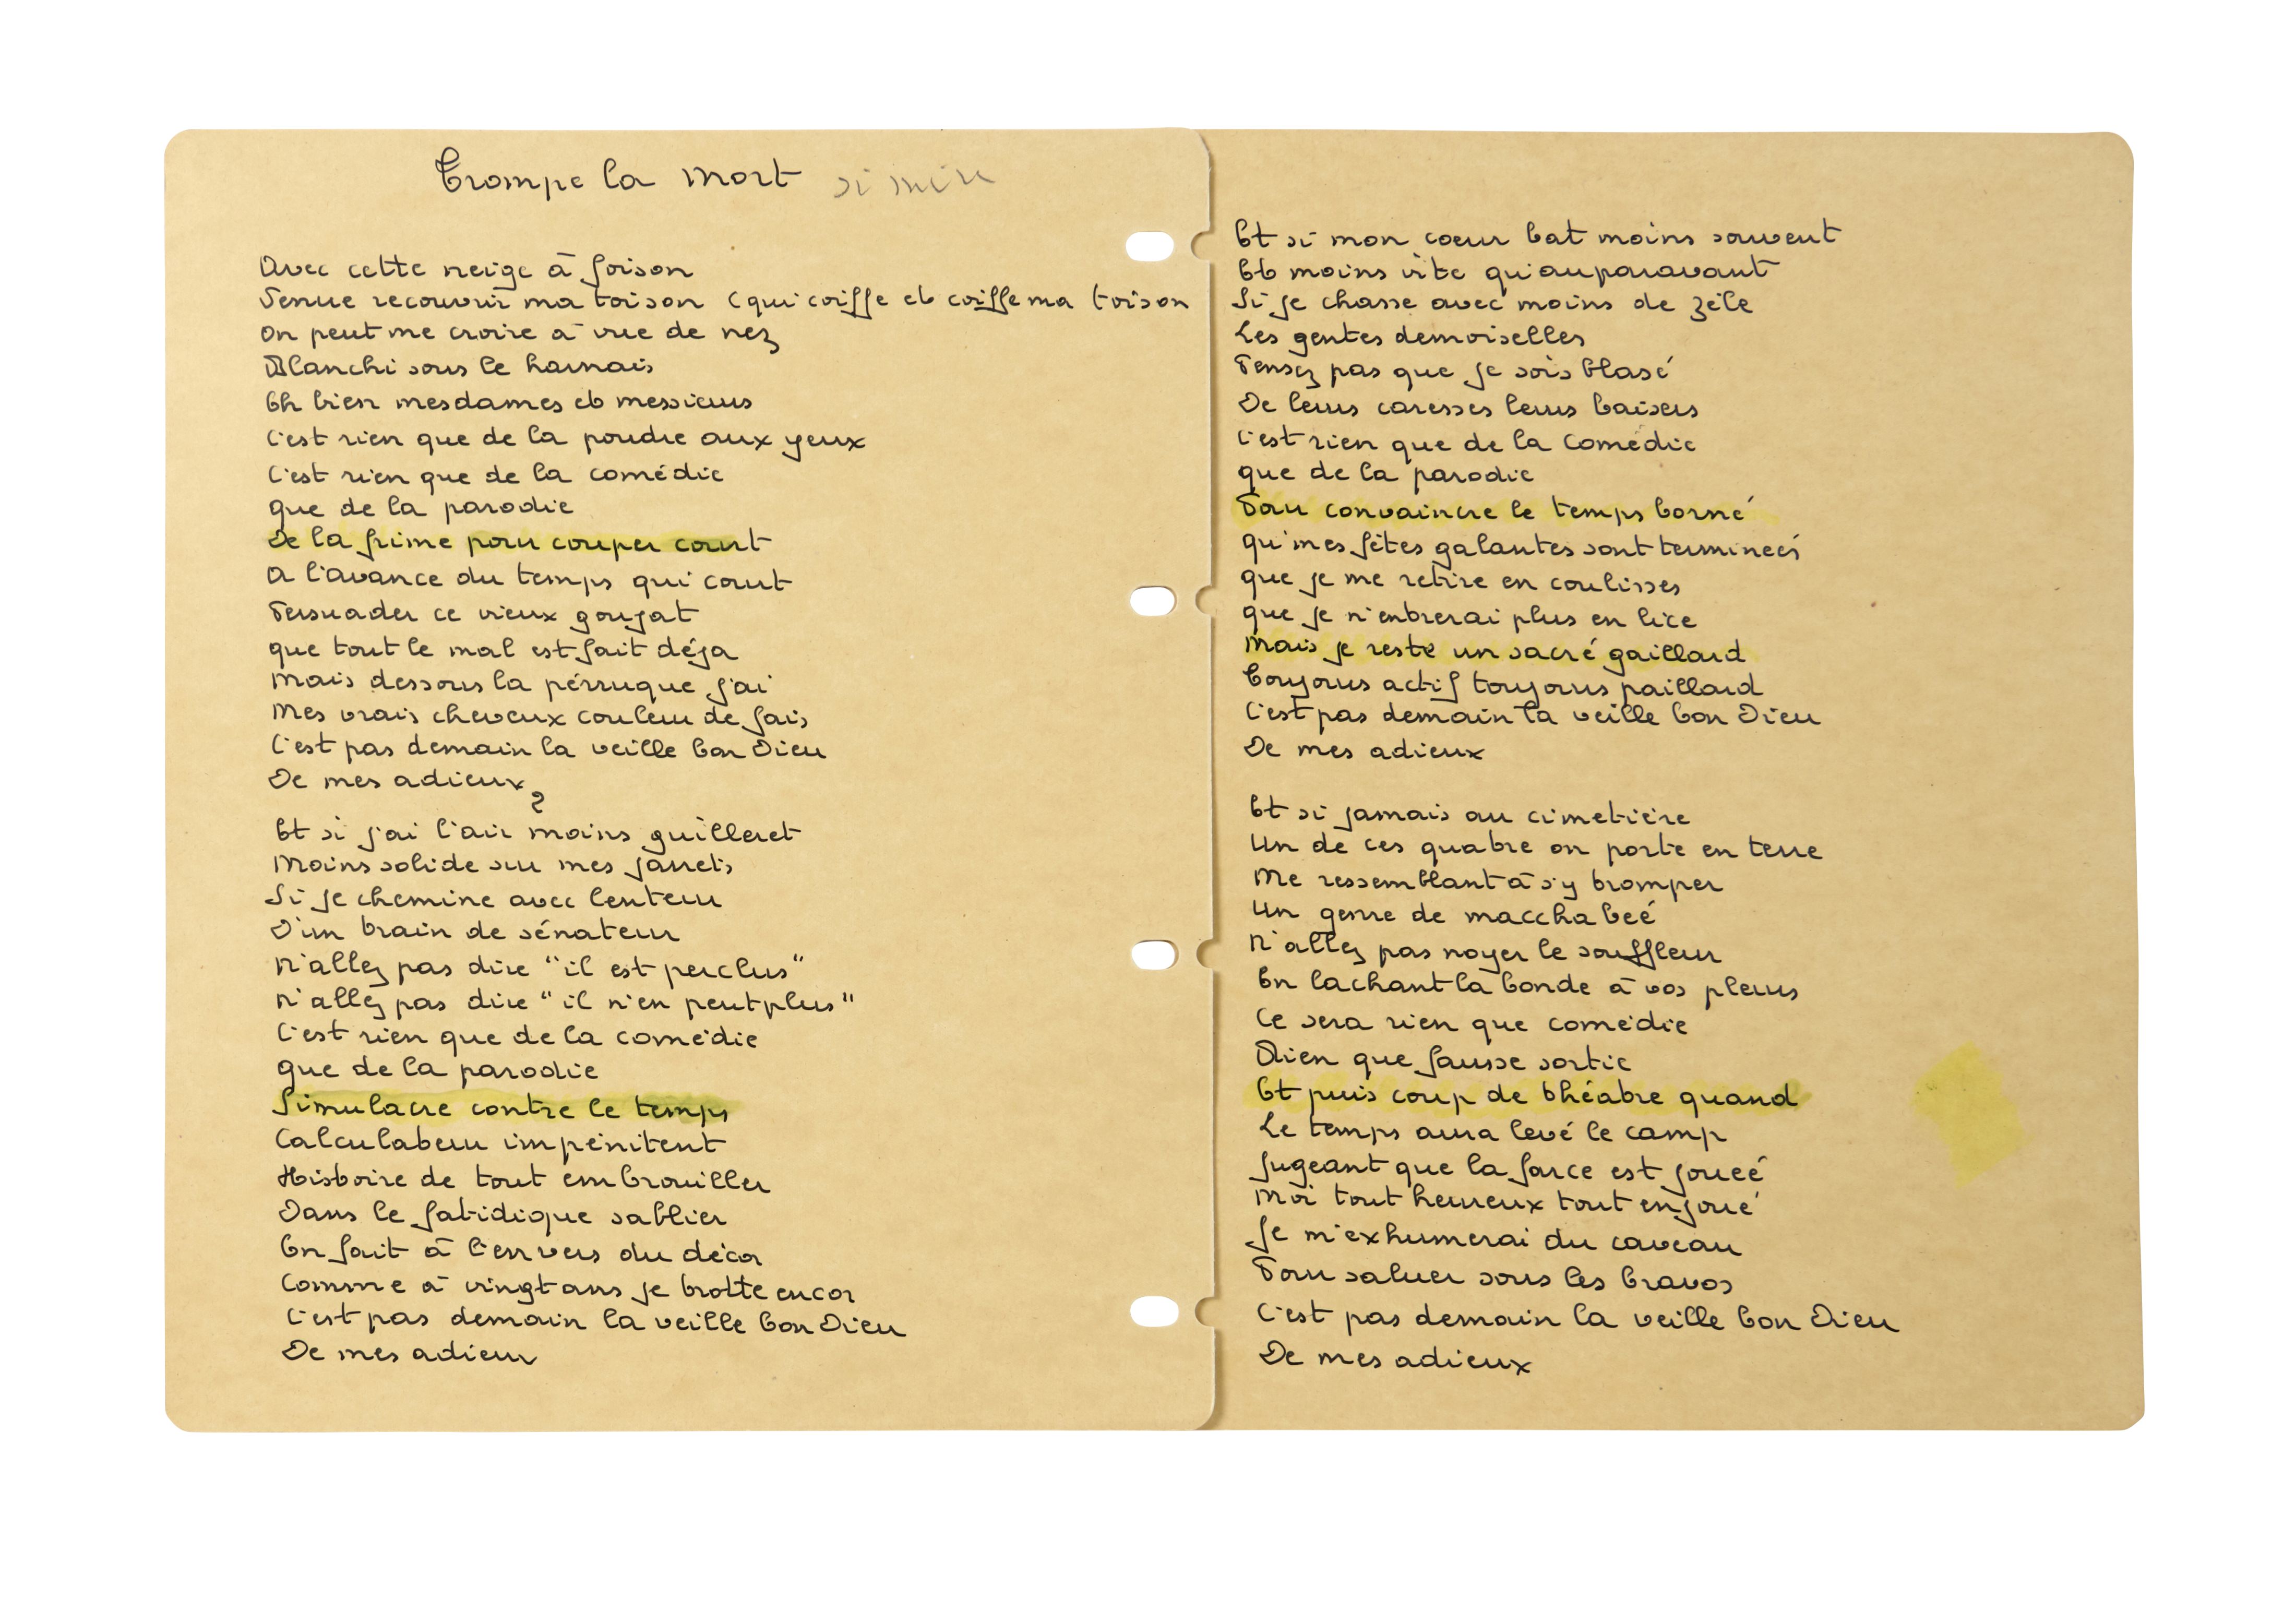 Trompe la mort si min
Avec cette neige à foison
Venue recouvrir ma toison (qui coiffe et coiffe ma toison
On peut me croire à vue de nez
Blanchi sous le harnais
Eh bien mesdames et messieurs
C'est rien que de la poudre aux yeux
C'est rien que de la comédie
que de la parodie
De la frime pour couper court
A l'avance du temps qui court
Persuader ce vieux goujat
que tout le mal est fait déja
Mais dessous la pérruque j'ai
Mes vrais cheveux couleur de jais
C'est pas demain la veille bon Dieu
De mes adieux
2
Et si j'ai l'air moins guilleret
Moins solide sur mes jarrets
Si je chemine avec lenteur
D'un train de sénateur
N'allez pas dire "il est perclus"
N'allez pas dire "il n'en peut plus"
C'est rien que de la comédie
que de la parodie
Simulacre contre le temps
Calculateur impénitent
Histoire de tout embrouiller
Dans le fatidique sablier
En fait à l'envers du décor
Comme à vingt ans je trotte encor
C'est pas demain la veille bon Dieu
De mes adieux
Et si mon coeur bat moins souvent
Et moins vite qu'auparavant
Si je chasse avec moins de zèle
Les gentes demoiselles
Pensez pas que je sois blasé
De leurs caresses leurs baisers
C'est rien que de la Comédie
que de la parodie
Pour convaincre le temps borné
qu'mes fêtes galantes sont terminéés
que je me retire en coulisses
que je n'entrerai plus en lice
Mais je reste un sacré gaillard
Toujours actif toujours paillard
C'est pas demain la veille bon Dieu
De mes adieux
Et si jamais au cimetière
Un de ces quatre on porte en terre
Me ressemblant à s'y tromper
Un genre de macchabeé
N'allez pas noyer le souffleur
En lachant la bonde à vos pleurs
Ce sera rien que comédie
Rien que fausse sortie
Et puis coup de théatre quand
Le temps aura levé le camp
Jugeant que la farce est joueé
Moi tout heureux tout enjoué
Je m'exhumerai du caveau
Pour saluer sous les bravos
C'est pas demain la veille bon Dieu
De mes adieux